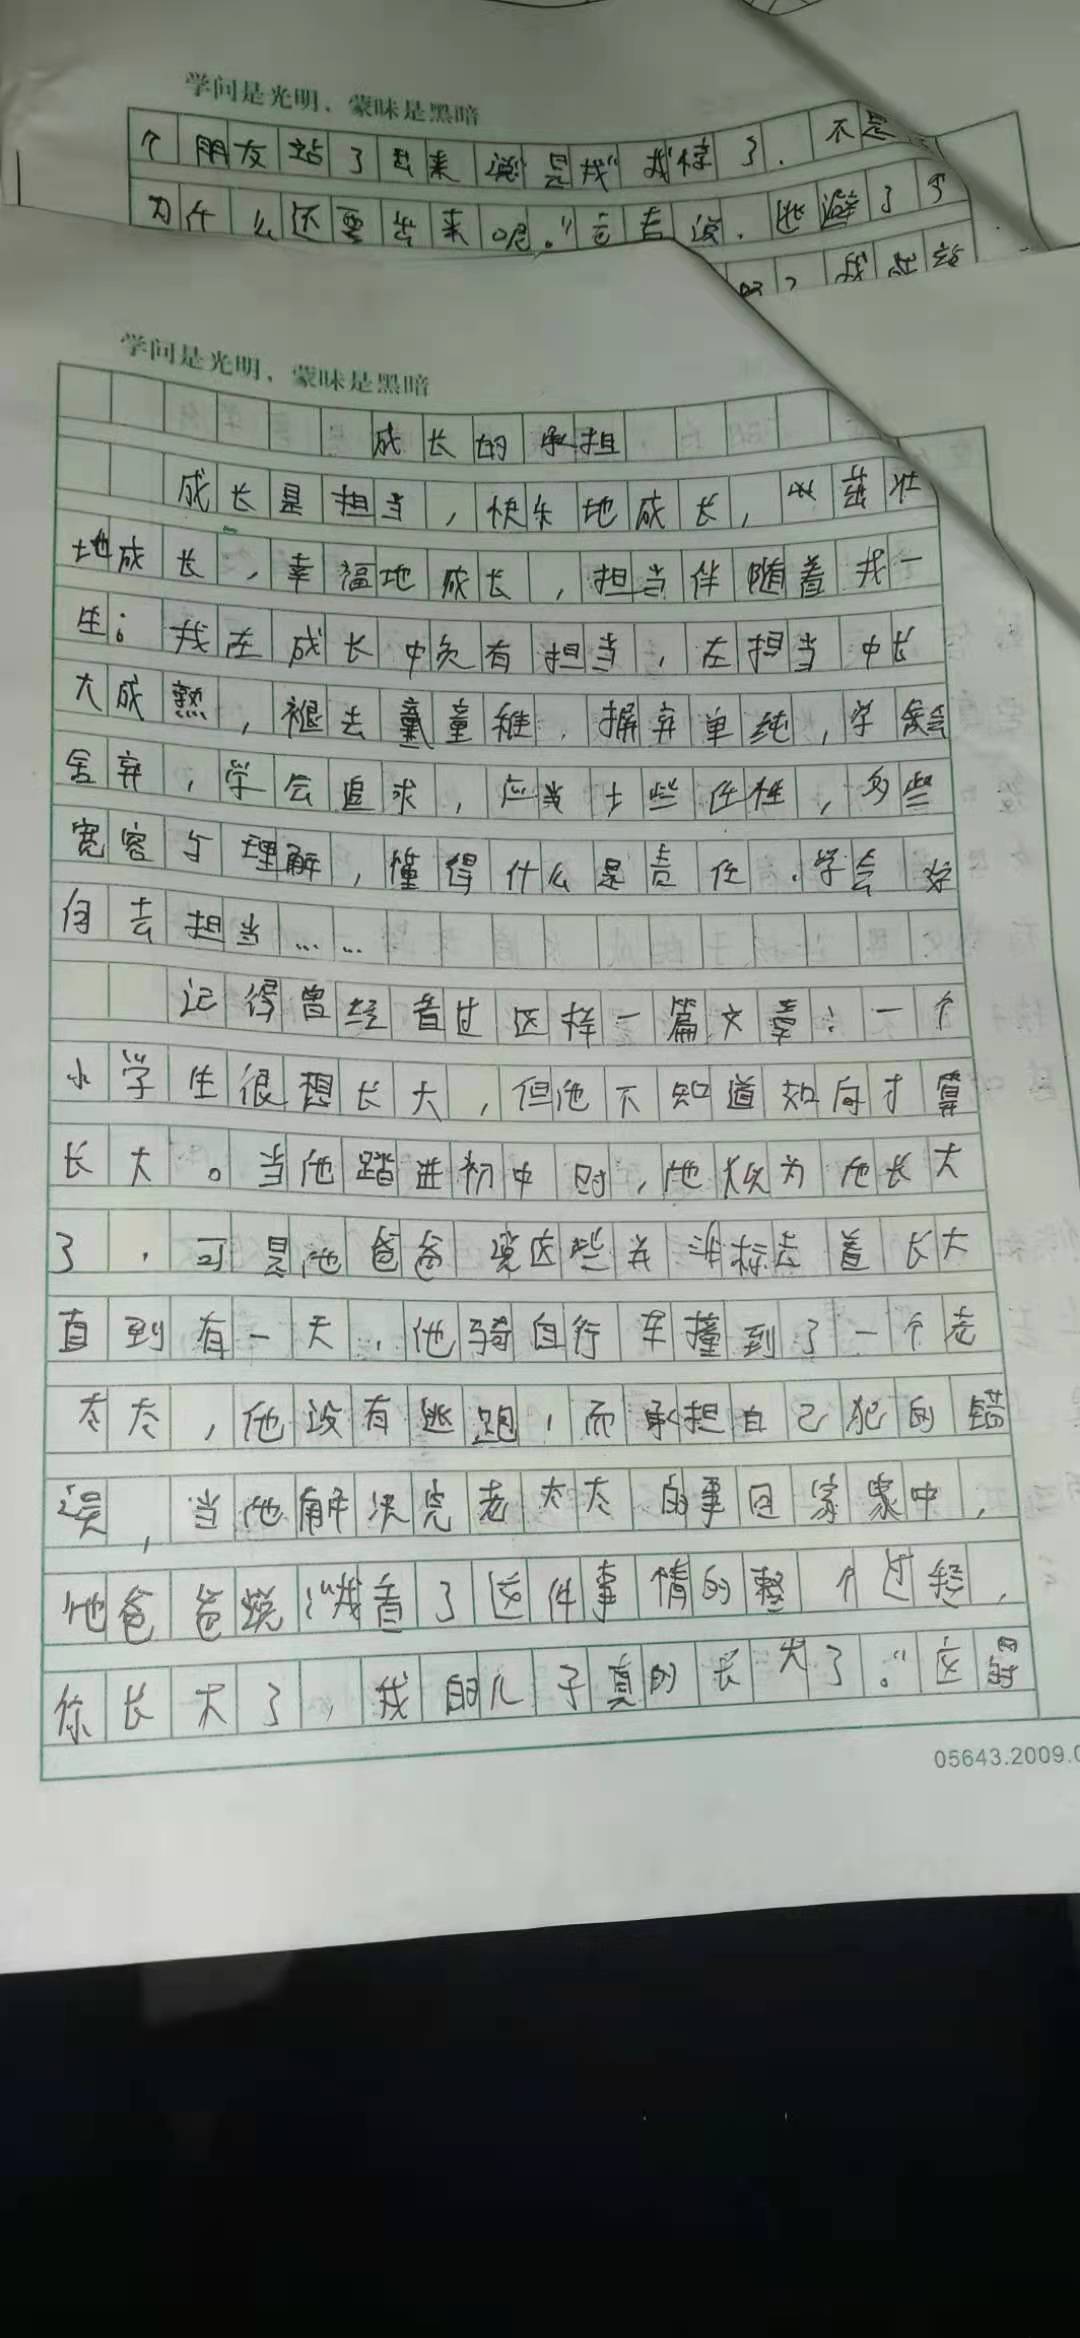 学问是光明、蒙昧是黑暗
个朋友站了出来说是我"我撞了.不是
为什么还要出来呢。"
学问是光明、蒙昧是黑暗
成长的承担
成长是担当，快乐地成长，茁壮
地成长，幸福地成长，担当伴随着我一
生；我在成长中负有担当，在担当中长
大成熟，褪去童稚.摒弃单纯，学会
舍弃，学会追求，应当少些任性，多些
宽容与理解，懂得什么是责任.学会如
何去担当……
记得曾经看过这样一篇文章：一个
小学生很想长大，但他不知道如何才算
长大。当他踏进初中时，他以为他长大
了，可是他爸爸说这些并非标志着长大
直到有一天，他骑自行车撞到了一个老
太太，他没有逃跑，而承担自己犯的错
误，当他解决完老太太的事回家家中，
他爸爸说"我看了这件事情的整个过程，
你长大了，我的儿子真的长大了。"这时
05643.2009.0